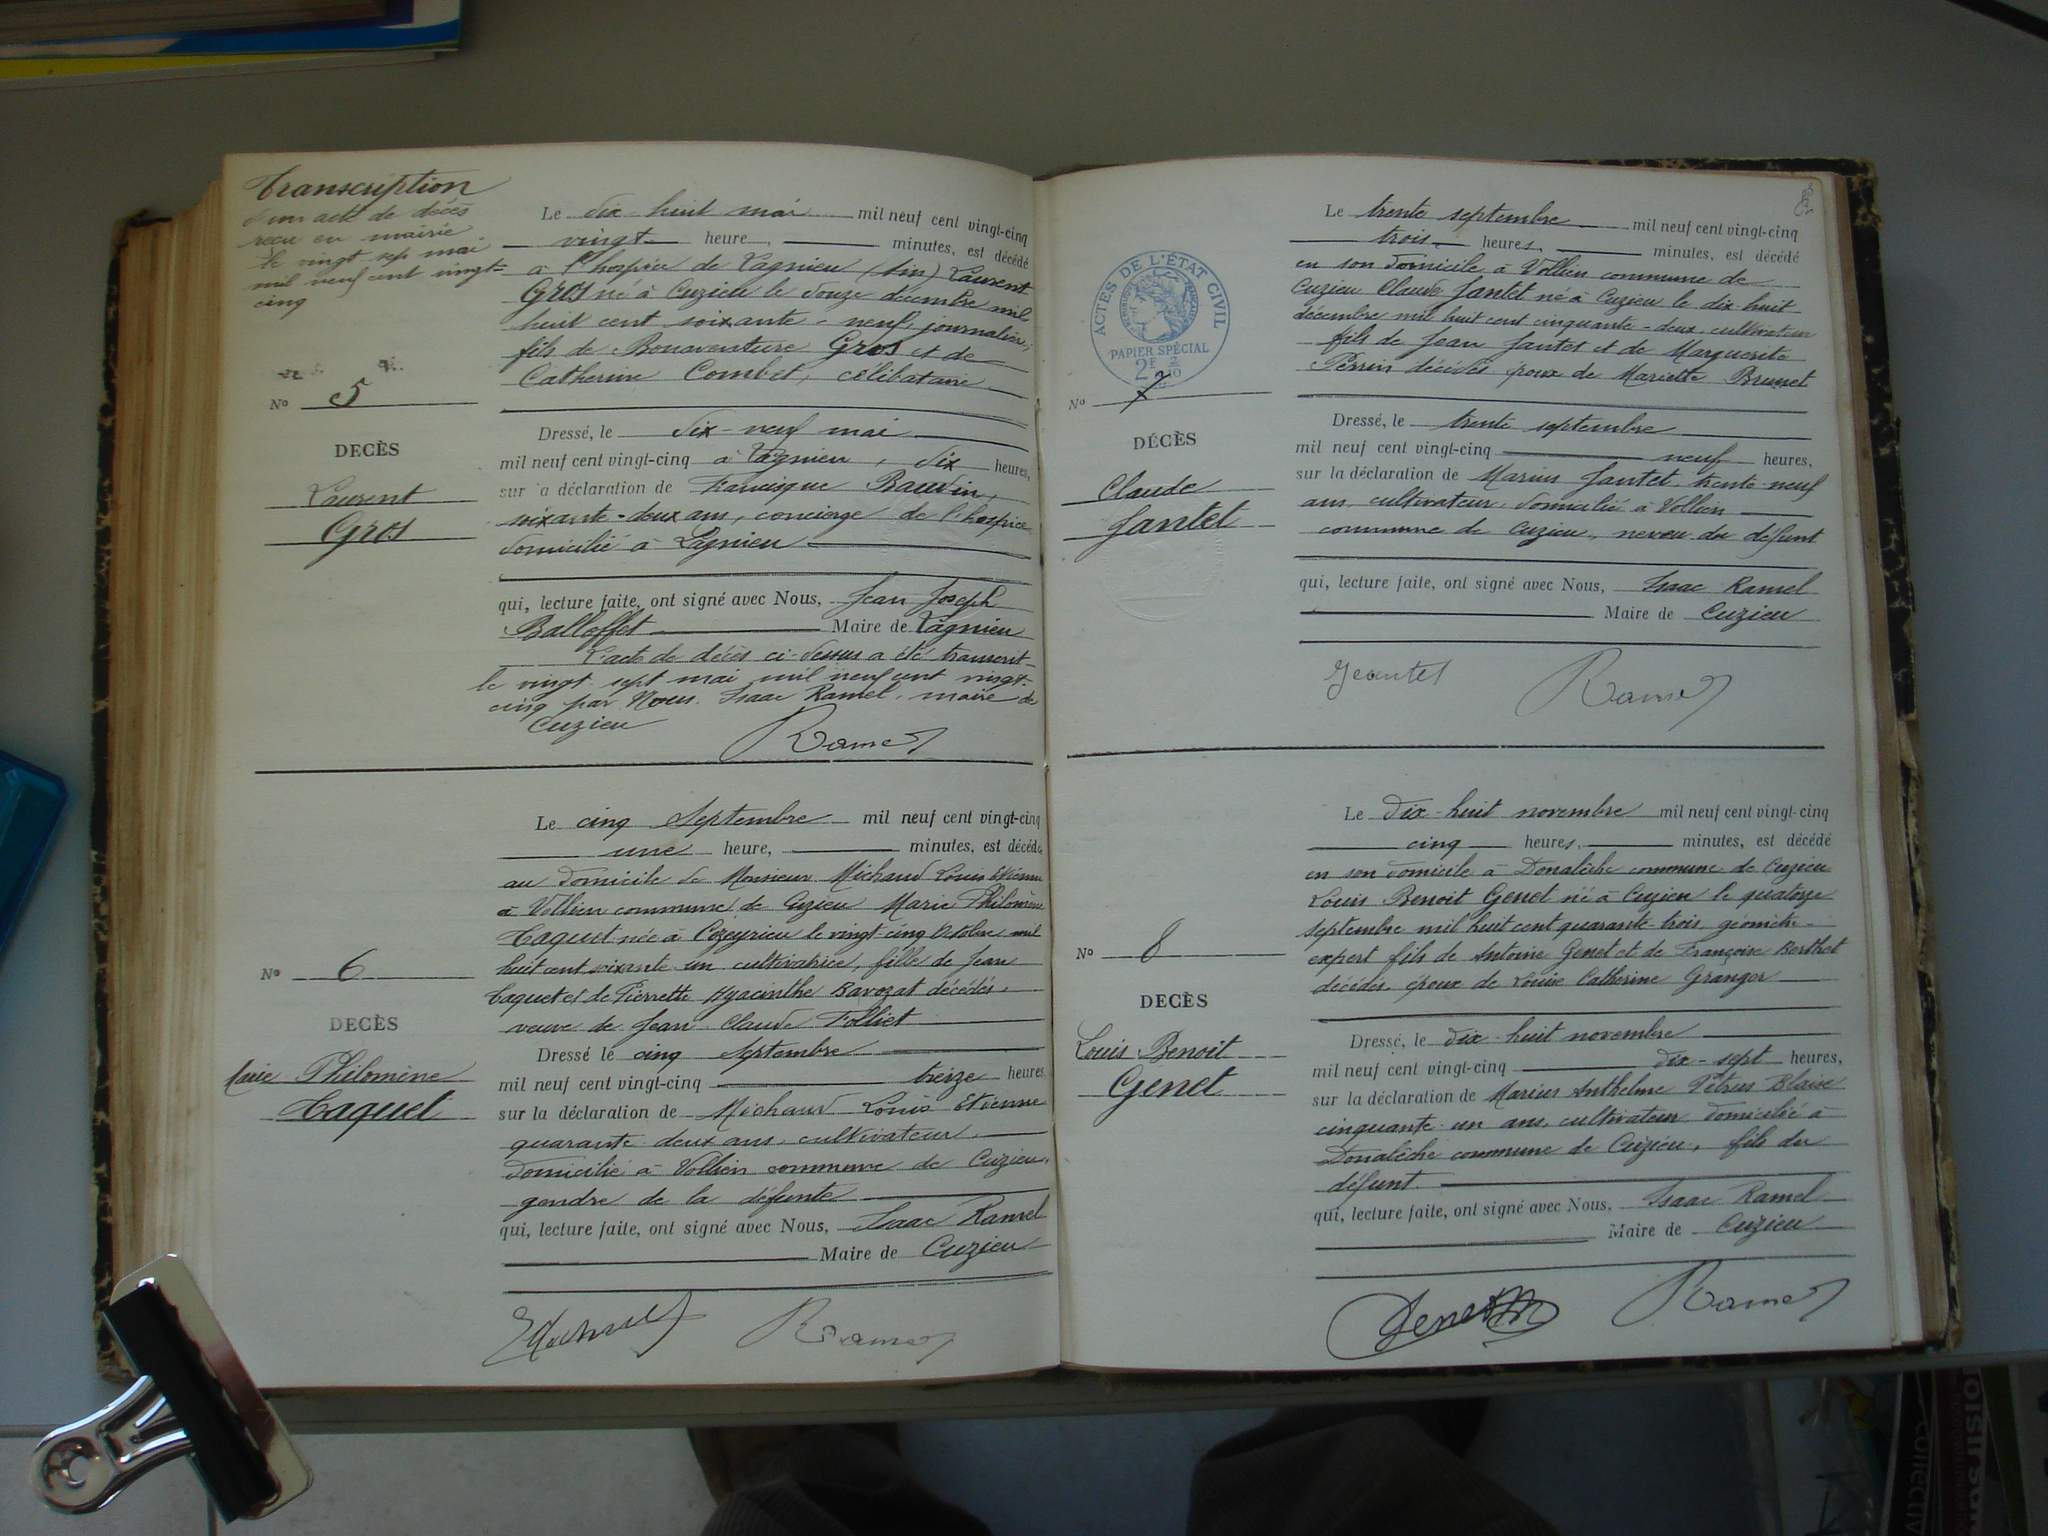 Transcription
d'un acte de décès
reçu en mairie
le vingt sep mai
mil neuf cent vingt-
cinq
Nº 5
DECÈS
Laurent
Gros
Le dix-huit mai mil neuf cent vingt-cinq
vingt heure, minutes, est décédé
à l'hospice de Lagnieu (Ain) Laurent
Gros né à Cuzieu le douze décembre mil
huit cent soixante-neuf, journalier,
fils de Bonaventure Gros et de
Catherine Combet, célibataire
Dressé, le dix-neuf mai
mil neuf cent vingt-cinq à Lagnieu, dix heures,
sur a déclaration de Francisque Baudin,
soixante-deux ans, concierge de l'hospice
domicilié à Lagnieu
qui, lecture faite, ont signé avec Nous, Jean Joseph
Balloffet Maire de Lagnieu
L'acte de décès ci-dessus a été transcrit
le vingt sept mai mil neuf cent vingt-
cinq par Nous Isaac Ramel, maire de
Cuzieu
Ramel
Nº 6
DECÈS
Marie Philomène
Taquet
Le cinq Septembre mil neuf cent vingt-cinq
une heure, minutes, est décédé
au domicile de Monsieur Michaud Louis Etienne
à Vollien commune de Cuzieu Marie Philomène
Taquet née à Cozeyrieu le vingt-cinq Octobre mil
huit cent soixante un cultivatrice, fille de Jean
Taquet et de Pierrette Hyacinthe Bavozat décédés,
veuve de Jean-Claude Folliet
Dressé le cinq Septembre
mil neuf cent vingt-cinq treize heures,
sur la déclaration de Michaud Louis Etienne
quarante deux ans, cultivateur,
domicilié à Vollien commune de Cuzieu,
gendre de la défunte
qui, lecture faite, ont signé avec Nous, Isaac Ramel
Maire de Cuzieu
Ramel
ACTES DE L'ÉTAT CIVIL
PAPIER SPÉCIAL
Nº 7
DÉCÈS
Claude
Jantet
Le trente septembre mil neuf cent vingt-cinq
trois heures, minutes, est décédé
en son domicile à Vollien commune de
Cuzieu Claude Jantet né à Cuzieu le dix-huit
décembre mil huit cent cinquante-deux, cultivateur
fils de Jean Jantet et de Marguerite
Perrin décédés époux de Mariette Brunet
Dressé, le trente septembre
mil neuf cent vingt-cinq neuf heures,
sur la déclaration de Marius Jantet trente-neuf
ans, cultivateur, domicilié à Vollien
commune de Cuzieu, neveu du défunt
qui, lecture faite, ont signé avec Nous, Isaac Ramel
Maire de Cuzieu
Jeantet Ramel
Nº 8
DECÈS
Louis Benoit
Genet
Le dix-huit novembre mil neuf cent vingt-cinq
cinq heures, minutes, est décédé
en son domicile à Donalèche commune de Cuzieu
Louis Benoit Genet né à Cuzieu le quatorze
septembre mil huit cent quarante-trois, géomètre-
expert fils de Antoine Genet et de Françoise Berthet
décédés, époux de Louise Catherine Granger
Dressé, le dix-huit novembre
mil neuf cent vingt-cinq dix-sept heures,
sur la déclaration de Marius Anthelme Pétrus Blaise
cinquante-un ans, cultivateur domicilié à
Donalèche commune de Cuzieu, fils du
défunt.
qui, lecture faite, ont signé avec Nous, Isaac Ramel
Maire de Cuzieu
Genet Ramel